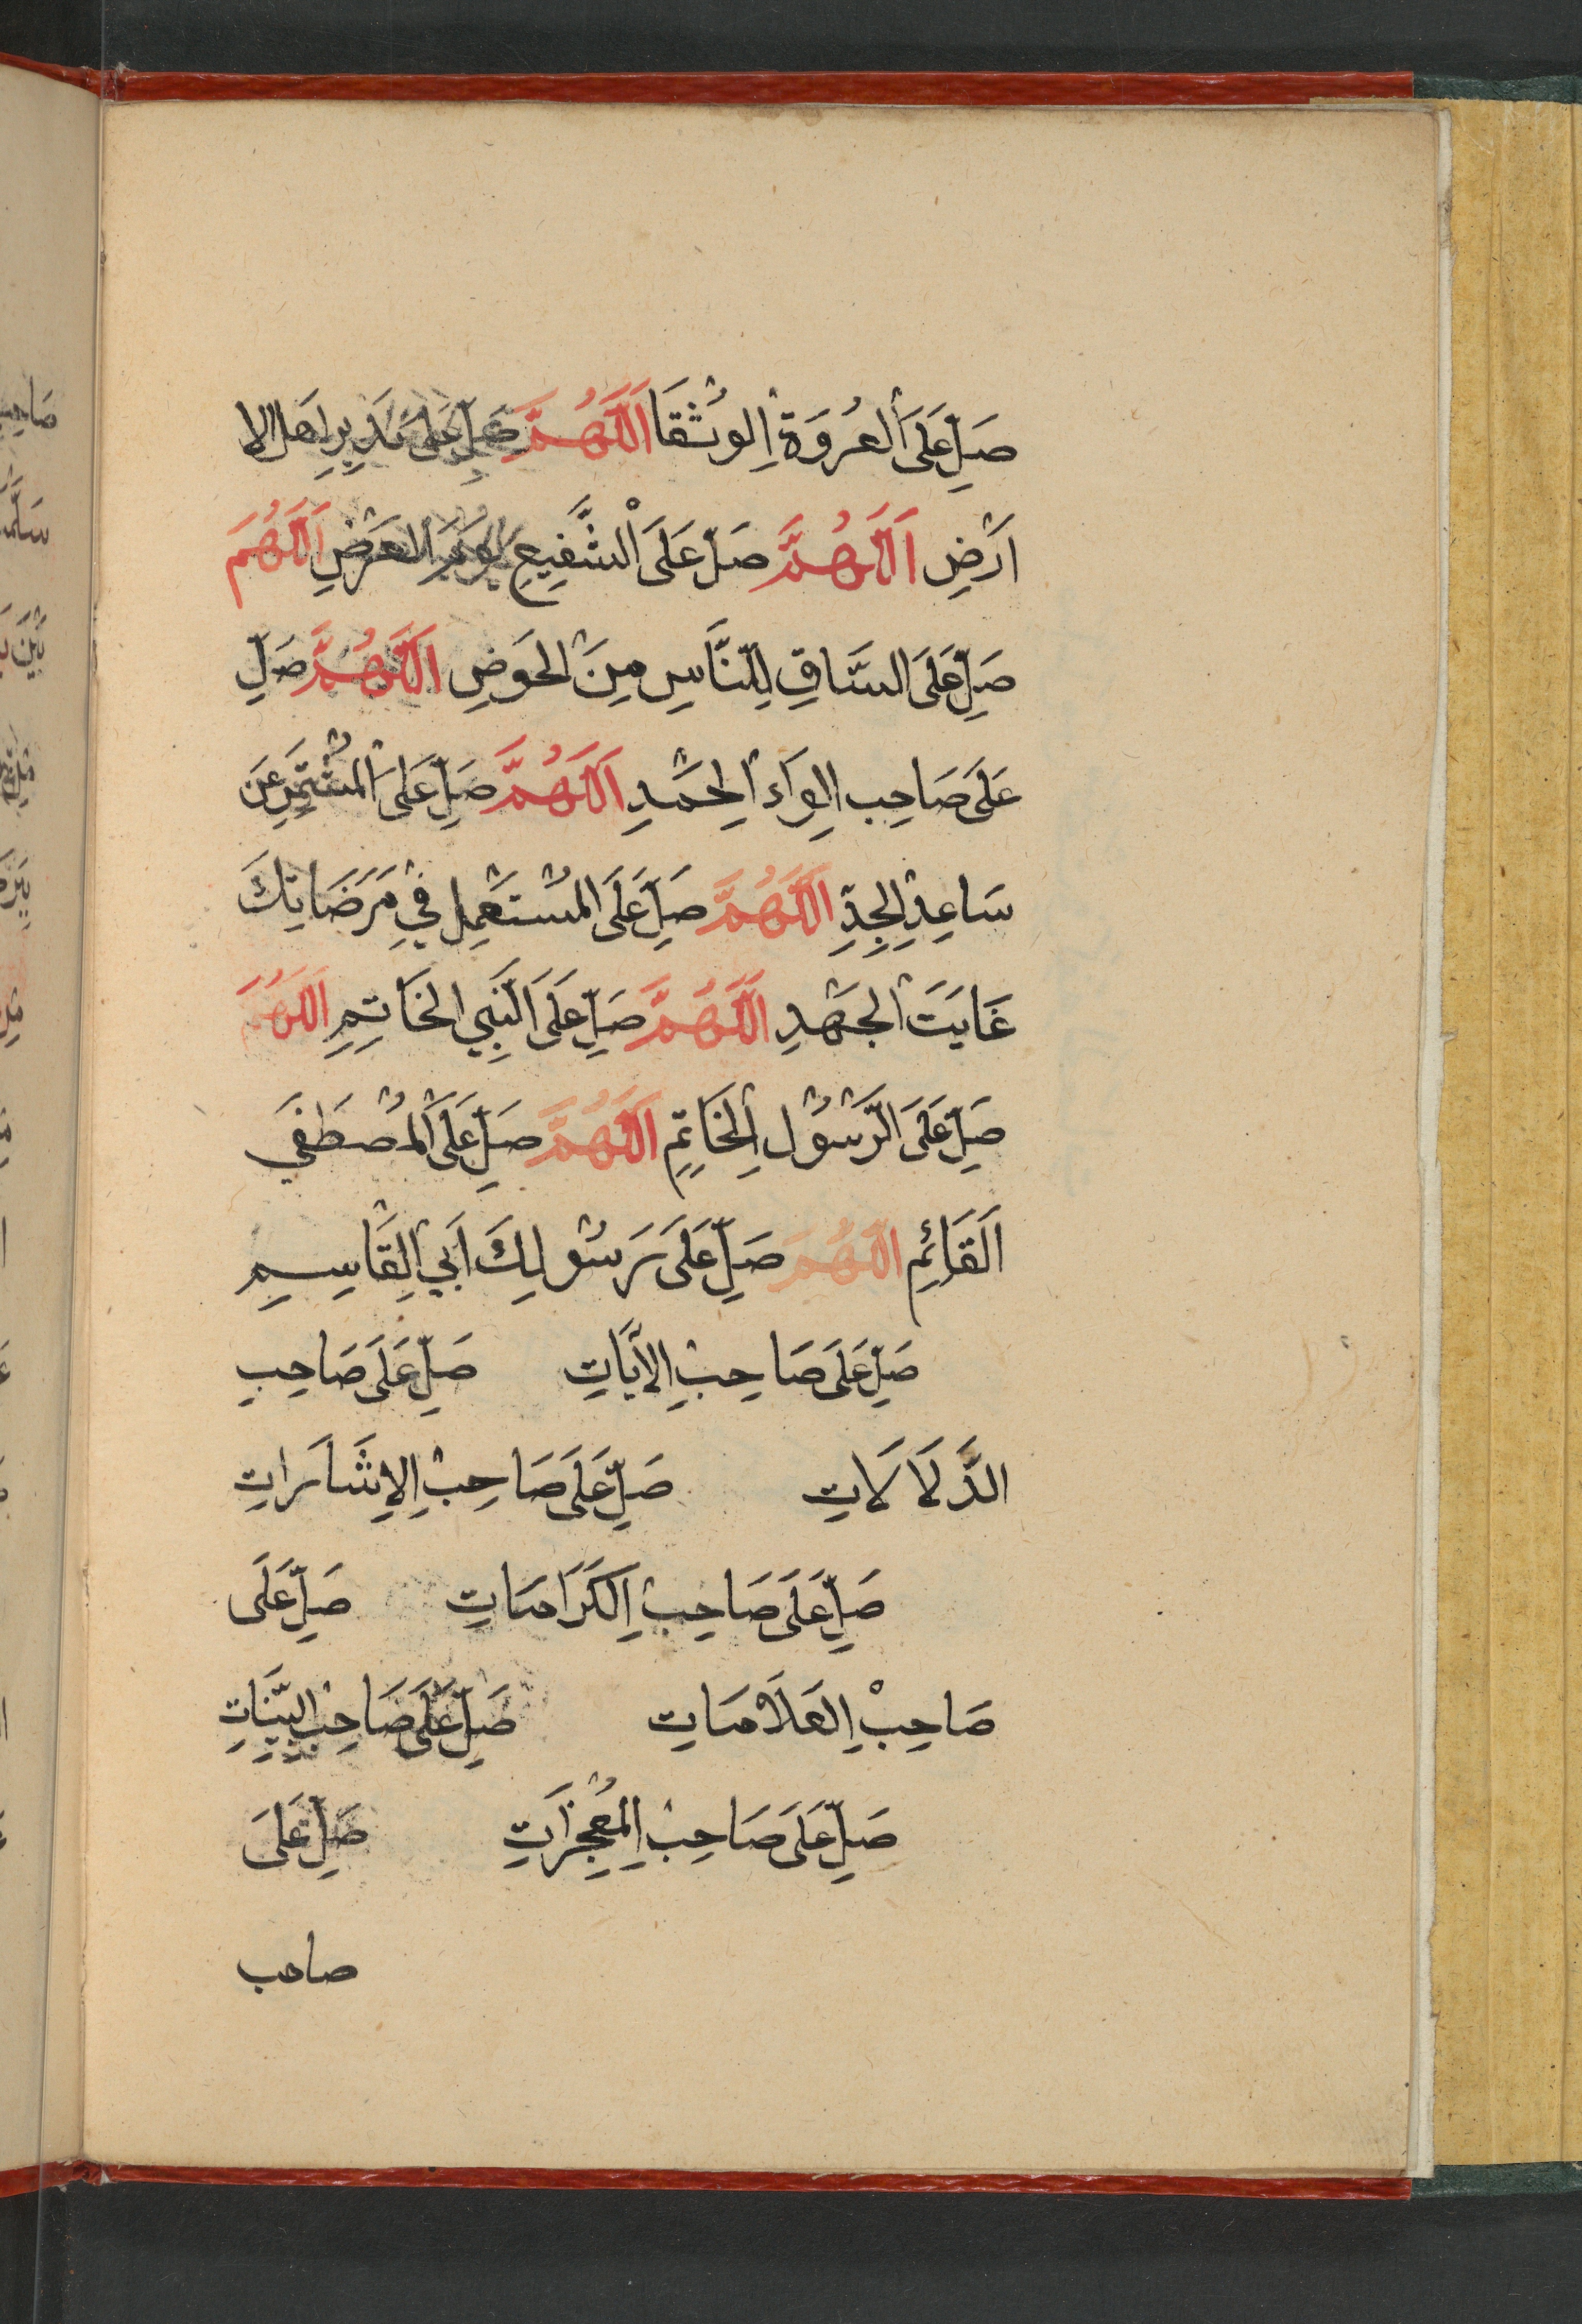 صَلِّ عَلَى الْعُرْوَةِ الْوُثْقَا اَللّٰهُمَّ صَلِّ عَلَى نَذِيرِ اَهْلِ الا
اَرْضِ اَللّٰهُمَّ صَلِّ عَلَى الشَّفِيعِ يَوْمَ الْعَرْضِ اَللّٰهُمَ
صَلِّ عَلَى السَّاقِ لِلنَّاسِ مِنَ الْحَوْضِ اَللّٰهُمَّ صَلِّ
عَلَى صَاحِبِ الِوَاءِ الْحَمْدِ اَللّٰهُمَّ صَلِّ عَلَى الْمُشَمِّرِ عَنَ
سَاعِدِ الْجِدِّ اَللّٰهُمَّ صَلِّ عَلَى الْمُسْتَعْمِلِ فِي مَرْضَاتِكَ
غَايَتَ الْجَهْدِ اَللّٰهُمَّ صَلِّ عَلَى النَّبِي الْخَاتِمِ اَللّٰهُمَ
صَلِّ عَلَى الرَّسُولِ الْخَاتِمِ اَللّٰهُمَّ صَلِّ عَلَى الْمُصْطَفَي
اَلْقَائِمِ اَللّٰهُمَ صَلِّ عَلَى رَسُولِكَ اَبِي الْقَاسِيمِ
صَلِّ عَلَى صَاحِبِ الْاٰيَاتِ صَلِّ عَلَى صَاحِبِ
الدَّلَالَاتِ صَلِّ عَلَى صَاحِبِ الْاِشَارَاتِ
صَلِّ عَلَى صَاحِبِ الْكَرَامَاتِ صَلِّ عَلَى
صَاحِبِ الْعَلَامَاتِ صَلِّ عَلَى صَاحِبِ الْبَيِّنَاتِ
صَلِّ عَلَى صَاحِبِ الْمُعْجِزَاتِ صَلِّ عَلَى
صاحب